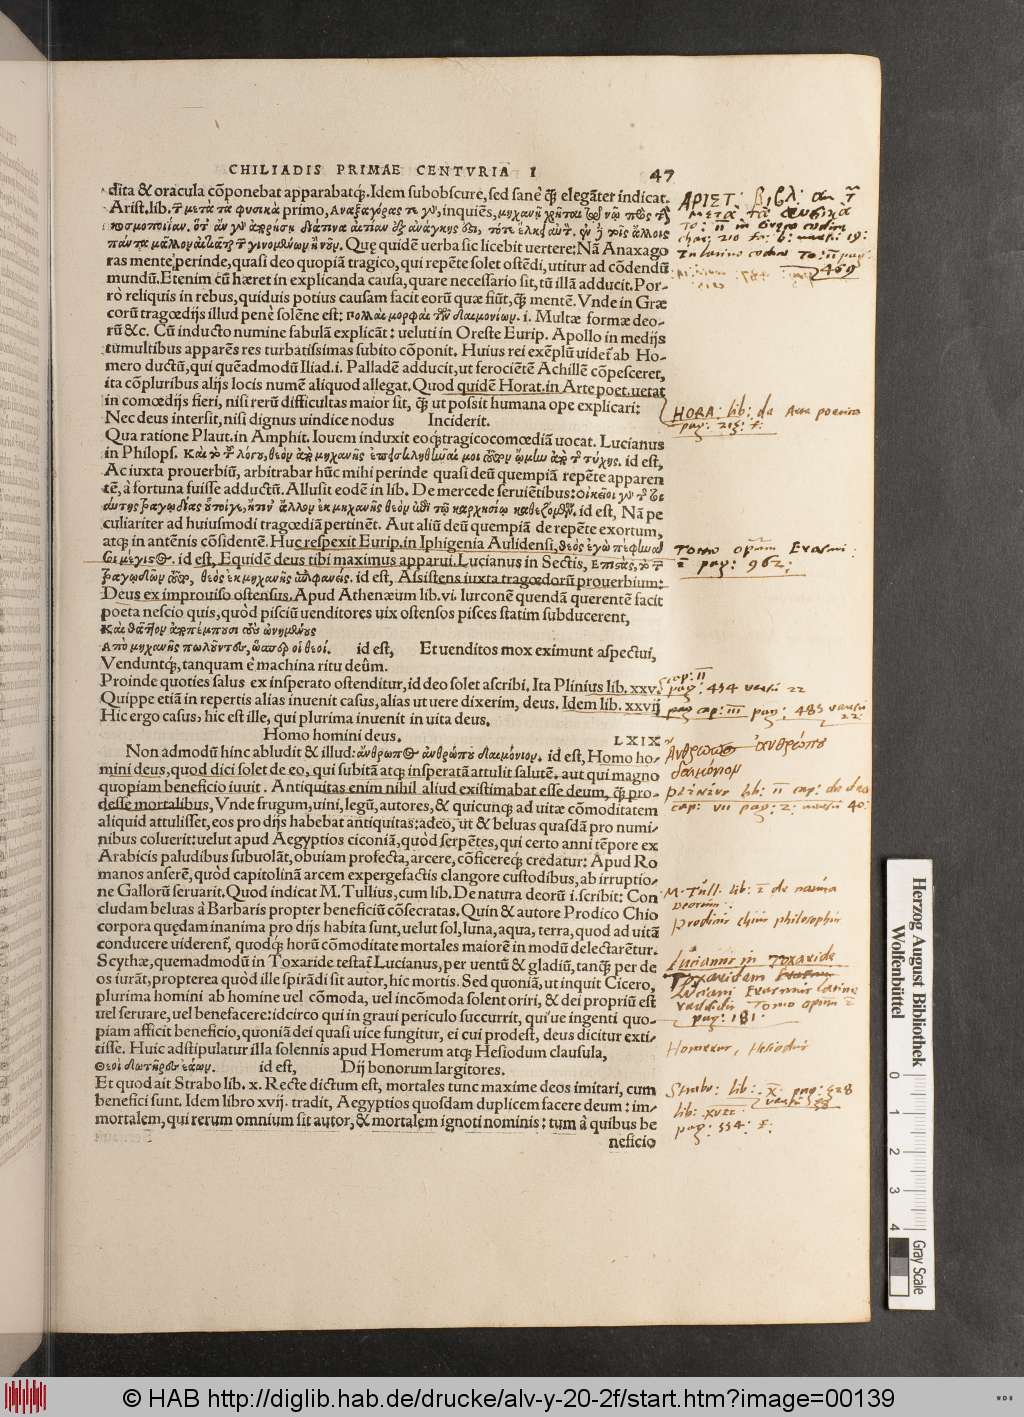 CHILIADIS PRIMAE CENTVRIA I 47
dita & oracula cõponebat apparabatq;. Idem subobscure, sed sane q̃; elegãter indicat.
Arist. lib. τ̃ μετὰ τὰ φυσικὰ primo, Αναξαγόρας τε γὰρ, inquiẽs, μηχανῇ χρῆται
πάντα μᾶλλον αἰτιᾶται Que quidẽ uerba sic licebit uertere: Nã Anaxago
ras mente perinde, quasi deo quopiã tragico, qui repẽte solet ostẽdi, utitur ad cõdendũ
mundũ. Etenim cũ hæret in explicanda causa, quare necessario sit, tũ illã adducit. Por-
rò reliquis in rebus, quiduis potius causam facit eorũ quæ fiũt, q̃; mentẽ. Vnde in Græ
corũ tragœdijs illud penè solẽne est: πολλαὶ μορφαὶ τῶν δαιμονίων. i. Multæ formæ deo-
rũ &c. Cũ inducto numine fabulã explicãt: ueluti in Oreste Eurip. Apollo in medijs
tumultibus apparẽs res turbatissimas subito cõponit. Huius rei exẽplũ uidet̃ ab Ho-
mero ductũ, qui quẽadmodũ Iliad. i. Palladẽ adducit, ut ferociẽtẽ Achillẽ cõpesceret,
ita cõpluribus alijs locis numẽ aliquod allegat. Quod quidẽ Horat. in Arte poet. uetat
in comœdijs fieri, nisi rerũ difficultas maior sit, q̃; ut possit humana ope explicari:
Nec deus intersit, nisi dignus uindice nodus Inciderit.
Qua ratione Plaut. in Amphit. Iouem induxit eoq; tragicocomœdiã uocat. Lucianus
in Philops. id est,
Ac iuxta prouerbiũ, arbitrabar hũc mihi perinde quasi deũ quempiã repẽte apparen
tẽ, à fortuna fuisse adductũ. Allusit eodẽ in lib. De mercede seruiẽtibus:
id est, Nã pe
culiariter ad huiusmodi tragœdiã pertinẽt. Aut aliũ deũ quempiã de repẽte exortum,
atq; in antẽnis cõsidentẽ. Huc respexit Eurip. in Iphigenia Aulidensi, θεὸς ἐγὼ πέφηνα
id est, Equidẽ deus tibi maximus apparui. Lucianus in Sectis,
θεὸς ἐκ μηχανῆς ἐπιφανείς. id est, Assistens iuxta tragœdorũ prouerbium:
Deus ex improuiso ostensus. Apud Athenæum lib. vi. lurconẽ quendã querentẽ facit
poeta nescio quis, quòd pisciũ uenditores uix ostensos pisces statim subducerent,
Απὸ μηχανῆς πωλοῦντες, ὥσπερ οἱ θεοί. id est, Et uenditos mox eximunt aspectui,
Venduntq;, tanquam è machina ritu deûm.
Proinde quoties salus ex insperato ostenditur, id deo solet ascribi. Ita Plinius lib. xxv.
Quippe etiã in repertis alias inuenit casus, alias ut uere dixerim, deus. Idem lib. xxvij
Hic ergo casus: hic est ille, qui plurima inuenit in uita deus.
Homo homini deus. LXIX
Non admodũ hinc abludit & illud: ἄνθρωπος ἀνθρώπου δαιμόνιον. id est, Homo ho-
mini deus, quod dici solet de eo, qui subitã atq; insperatã attulit salutẽ. aut qui magno
quopiam beneficio iuuit. Antiquitas enim nihil aliud existimabat esse deum, q̃; pro-
desse mortalibus, Vnde frugum, uini, legũ, autores, & quicunq; ad uitæ cõmoditatem
aliquid attulisset, eos pro dijs habebat antiquitas: adeo, ut & beluas quasdã pro numi-
nibus coluerit: uelut apud Aegyptios ciconiã, quòd serpẽtes, qui certo anni tẽpore ex
Arabicis paludibus subuolãt, obuiam profecta, arcere, cõficereq; credatur: Apud Ro
manos anserẽ, quòd capitolinã arcem expergefactis clangore custodibus, ab irruptio-
ne Gallorũ seruarit. Quod indicat M. Tullius, cum lib. De natura deorũ i. scribit: Con
cludam beluas à Barbaris propter beneficiũ cõsecratas. Quin & autore Prodico Chio
corpora quędam inanima pro dijs habita sunt, uelut sol, luna, aqua, terra, quod ad uitã
conducere uiderent̃, quodq; horũ cõmoditate mortales maiorẽ in modũ delectarẽtur.
Scythæ, quemadmodũ in Toxaride testat̃ Lucianus, per uentũ & gladiũ, tanq̃; per de
os iurãt, propterea quòd ille spirãdi sit autor, hic mortis. Sed quoniã, ut inquit Cicero,
plurima homini ab homine uel cõmoda, uel incõmoda solent oriri, & dei propriũ est
uel seruare, uel benefacere: idcirco qui in graui periculo succurrit, qui'ue ingenti quo-
piam afficit beneficio, quoniã dei quasi uice fungitur, ei cui prodest, deus dicitur exti-
tisse. Huic adstipulatur illa solennis apud Homerum atq; Hesiodum clausula,
Θεοὶ δωτῆρες ἐάων. id est, Dij bonorum largitores.
Et quod ait Strabo lib. x. Recte dictum est, mortales tunc maxime deos imitari, cum
benefici sunt. Idem libro xvij. tradit, Aegyptios quosdam duplicem facere deum: im-
mortalem, qui rerum omnium sit autor, & mortalem ignoti nominis: tum à quibus be
neficio
ΑΡΙΣΤ: βιβλ: α τ̃
μετὰ τὰ φυσικὰ
469
HORA: lib: de Arte poetica
pag: 215: f:
Tomo operum Erasmi
pag: 962:
cap: II
pag: 454 versu 22
cap: III pag: 483 versu
22:
Ανθρωπος ἀνθρώπου
δαιμόνιον
PLINIUS lib: II cap: de deo
cap: VII pag: 2: versu 40:
M. Tull. lib: de natura
deorum:
Prodicus chius philosophus
Lucianus in Toxaride
Toxaridem
Luciani Erasmus latine
Tomo operum
pag: 181:
Homerus, Hesiodus
Strabo: lib: X: pag: 528
lib: XVII:
pag: 554: f:
Herzog August Bibliothek
Wolfenbüttel
0 1 2 3 4
Gray Scale
© HAB http://diglib.hab.de/drucke/alv-y-20-2f/start.htm?image=00139